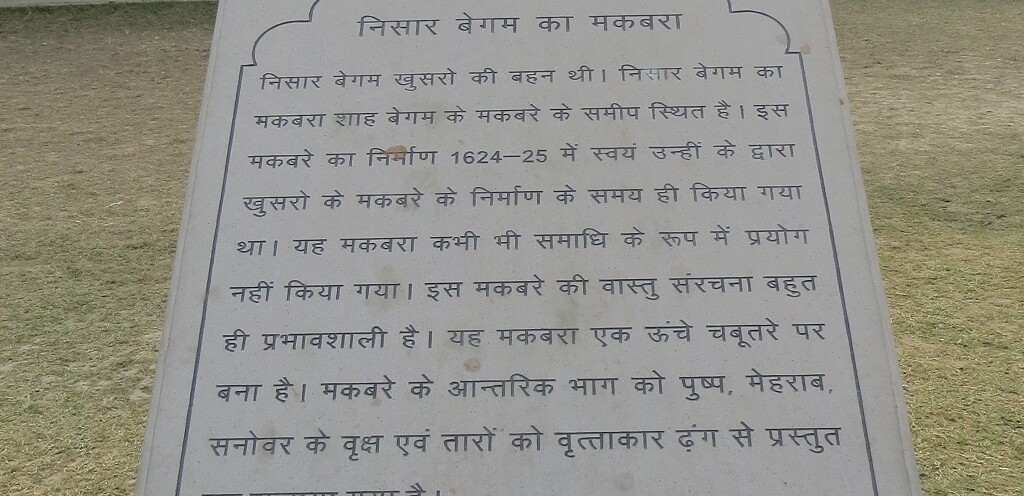 निसार बेगम का मकबरा
निसार बेगम खुसरो की बहन थी। निसार बेगम का
मकबरा शाह बेगम के मकबरे के समीप स्थित है। इस
मकबरे का निर्माण 1624–25 में स्वयं उन्हीं के द्वारा
खुसरो के मकबरे के निर्माण के समय ही किया गया
था। यह मकबरा कभी भी समाधि के रूप में प्रयोग
नहीं किया गया। इस मकबरे की वास्तु संरचना बहुत
ही प्रभावशाली है। यह मकबरा एक ऊंचे चबूतरे पर
बना है। मकबरे के आन्तरिक भाग को पुष्प, मेहराब,
सनोवर के वृक्ष एवं तारों को वृत्ताकार ढ़ंग से प्रस्तुत
गया है।